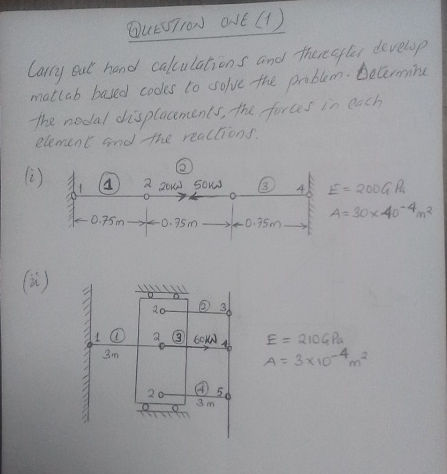 QUESTION ONE (1)
Carry out hand calculations and thereafter develop
matlab based codes to solve the problem. Determine
the nodal displacements, the forces in each
element and the reactions.
(i)
②
1 ① 2 20KN 50KN ③ 4 E = 200GPa
0.75m 0.75m 0.75m A = 30×40⁻⁴m²
(ii)
2 ② 3
1 ① 2 ③ 60KN 4 E = 210GPa
3m A = 3×10⁻⁴m²
2 ④ 5
3m